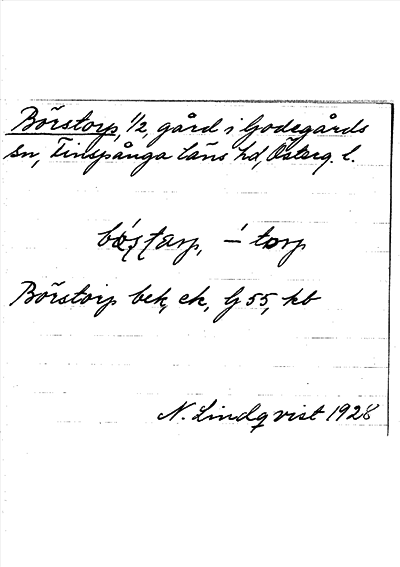 Börstorp, 1/2, gård i Godegårds
sn, Finspånga läns hd, Österg. l.
bǿʂʈarp, –́ torp
Börstorp bek, ek, G 55, kb
N. Lindqvist 1928